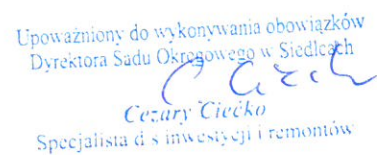 Upoważniony do wykonywania obowiązków
Dyrektora Sadu Okręgowego w Siedlcach
Cezary Ciećko
Specjalista d s inwestycji i remontów